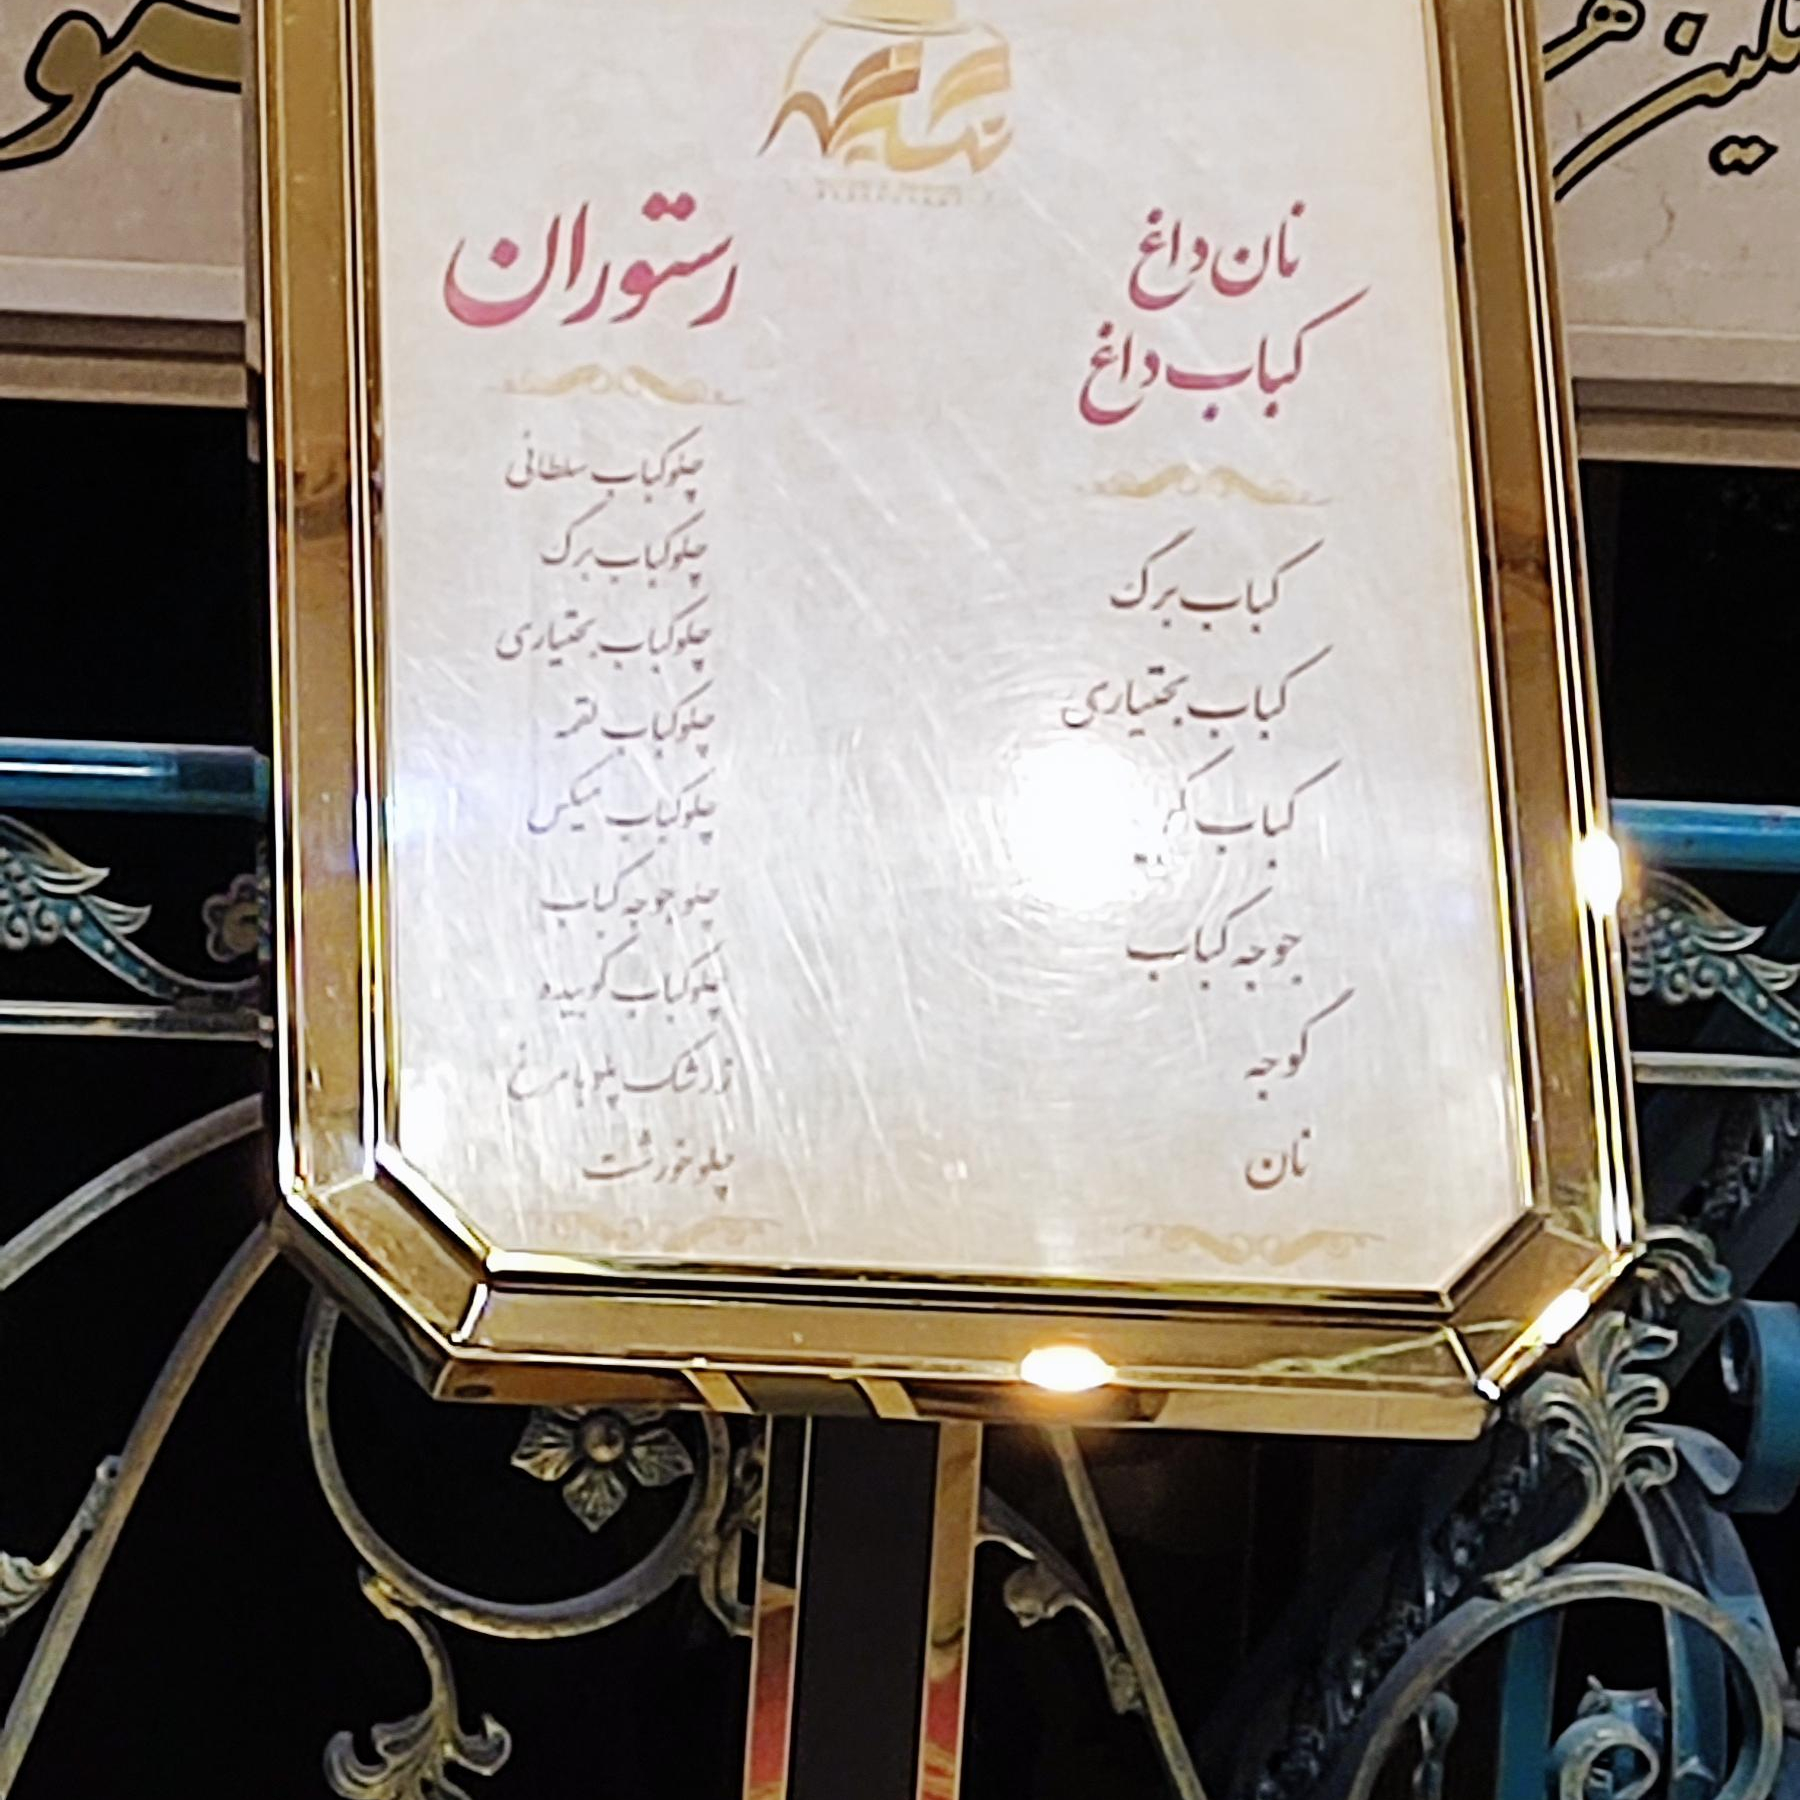 نان داغ
کباب داغ
کباب برگ
کباب بختیاری
کباب
جوجه کباب
گوجه
نان
رستوران
چلوکباب سلطانی
چلوکباب برگ
چلوکباب بختیاری
چلوکباب لقمه
چلوکباب میکس
چلو جوجه کباب
چلوکباب کوبیده
زرشک پلو با مرغ
چلو خورشت